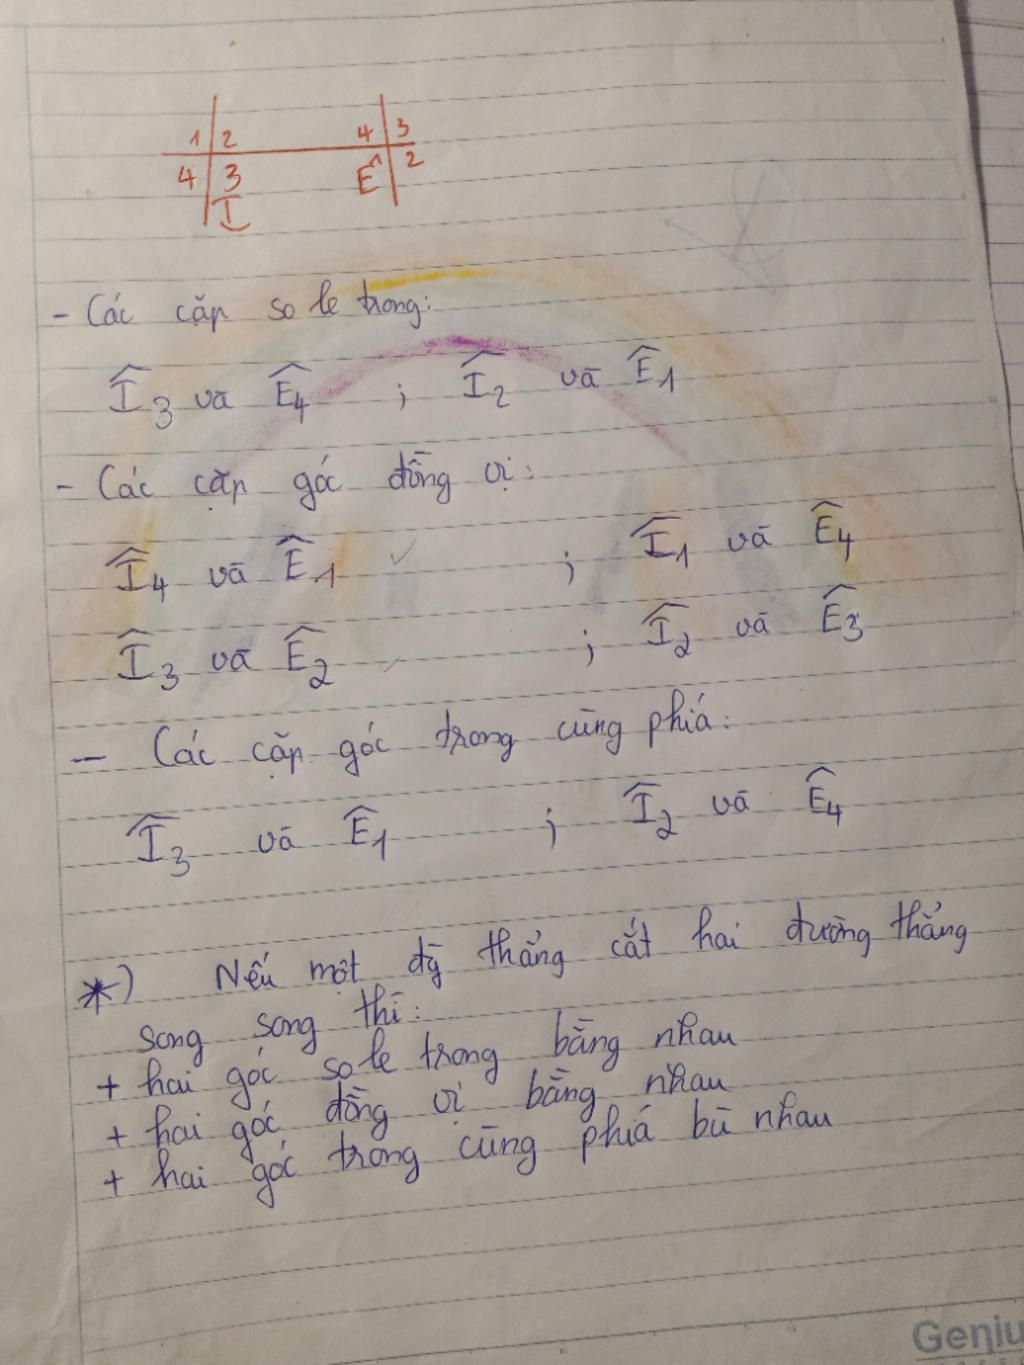 1 2 4 3
4 3 E^ 2
I
- Các cặp so le trong:
Î3 và Ê4 ; Î2 và Ê1
- Các cặp góc đồng vị:
Î4 và Ê1 ; Î1 và Ê4
Î3 và Ê2 ; Î2 và Ê3
- Các cặp góc trong cùng phía:
Î3 và Ê1 ; Î2 và Ê4
*) Nếu một đg̃ thẳng cắt hai đường thẳng
song song thì:
+ hai góc so le trong bằng nhau
+ hai góc đồng vị bằng nhau
+ hai góc trong cùng phía bù nhau
Geniu